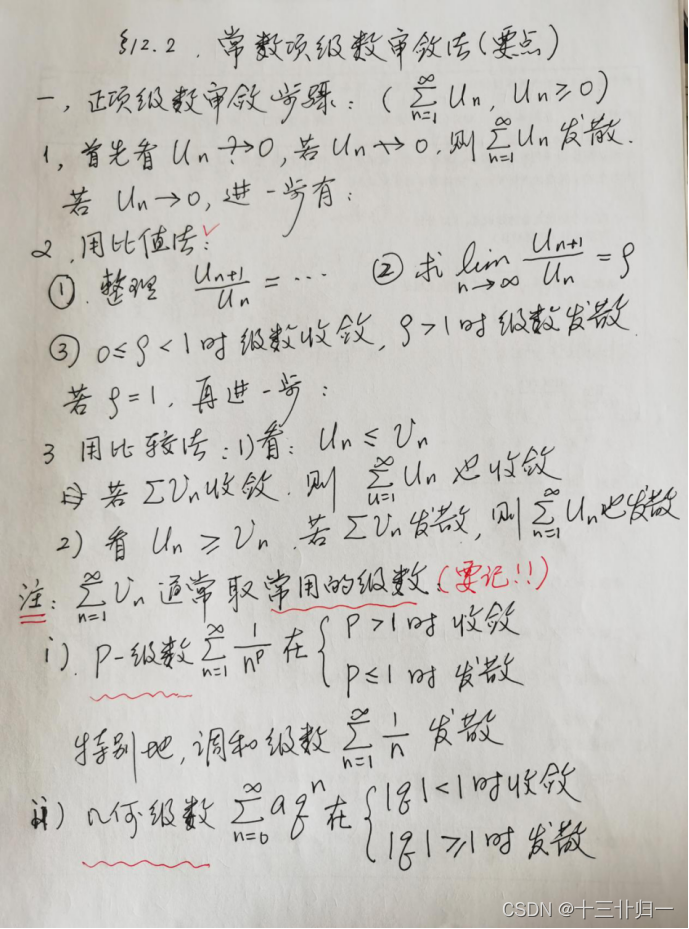 §12.2. 常数项级数审敛法(要点)
一, 正项级数审敛步骤: ( ∑_{n=1}^{∞} Un, Un≥0 )
1, 首先看 Un →? 0, 若 Un ↛ 0, 则 ∑_{n=1}^{∞} Un 发散.
若 Un→0, 进一步有:
2. 用比值法: ✓
①. 整理 U_{n+1}/U_n = … ② 求 lim_{n→∞} U_{n+1}/U_n = ρ
③ 0≤ρ<1时级数收敛, ρ>1时级数发散.
若 ρ=1, 再进一步:
3 用比较法: 1)看: Un ≤ Vn
若 ∑Vn收敛. 则 ∑_{n=1}^{∞} Un 也收敛
2) 看 Un ≥ Vn. 若 ∑Vn发散, 则 ∑_{n=1}^{∞} Un也发散
注: ∑_{n=1}^{∞} Vn 通常取常用的级数(要记!!)
i). P-级数 ∑_{n=1}^{∞} 1/n^p 在 { P>1时 收敛
P≤1 时 发散
特别地, 调和级数 ∑_{n=1}^{∞} 1/n 发散
ii) 几何级数 ∑_{n=0}^{∞} aq^n 在 { |q|<1时收敛
|q|≥1时 发散
CSDN @十三卄归一